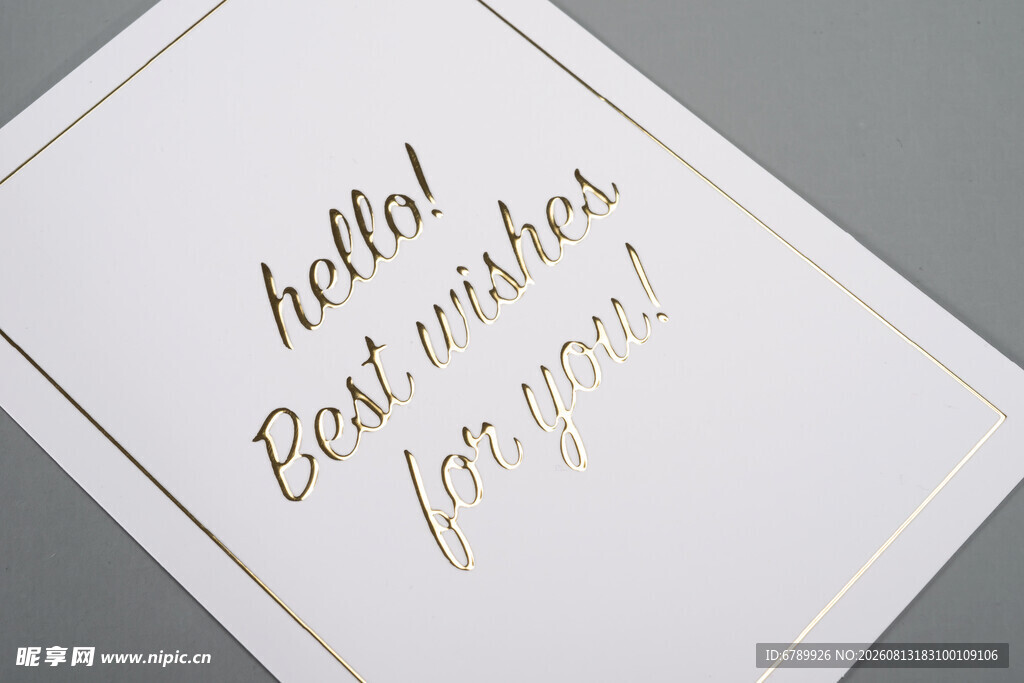 hello!
Best wishes
for you!
昵享网 www.nipic.cn
ID:6789926 NO:20260813183100109106